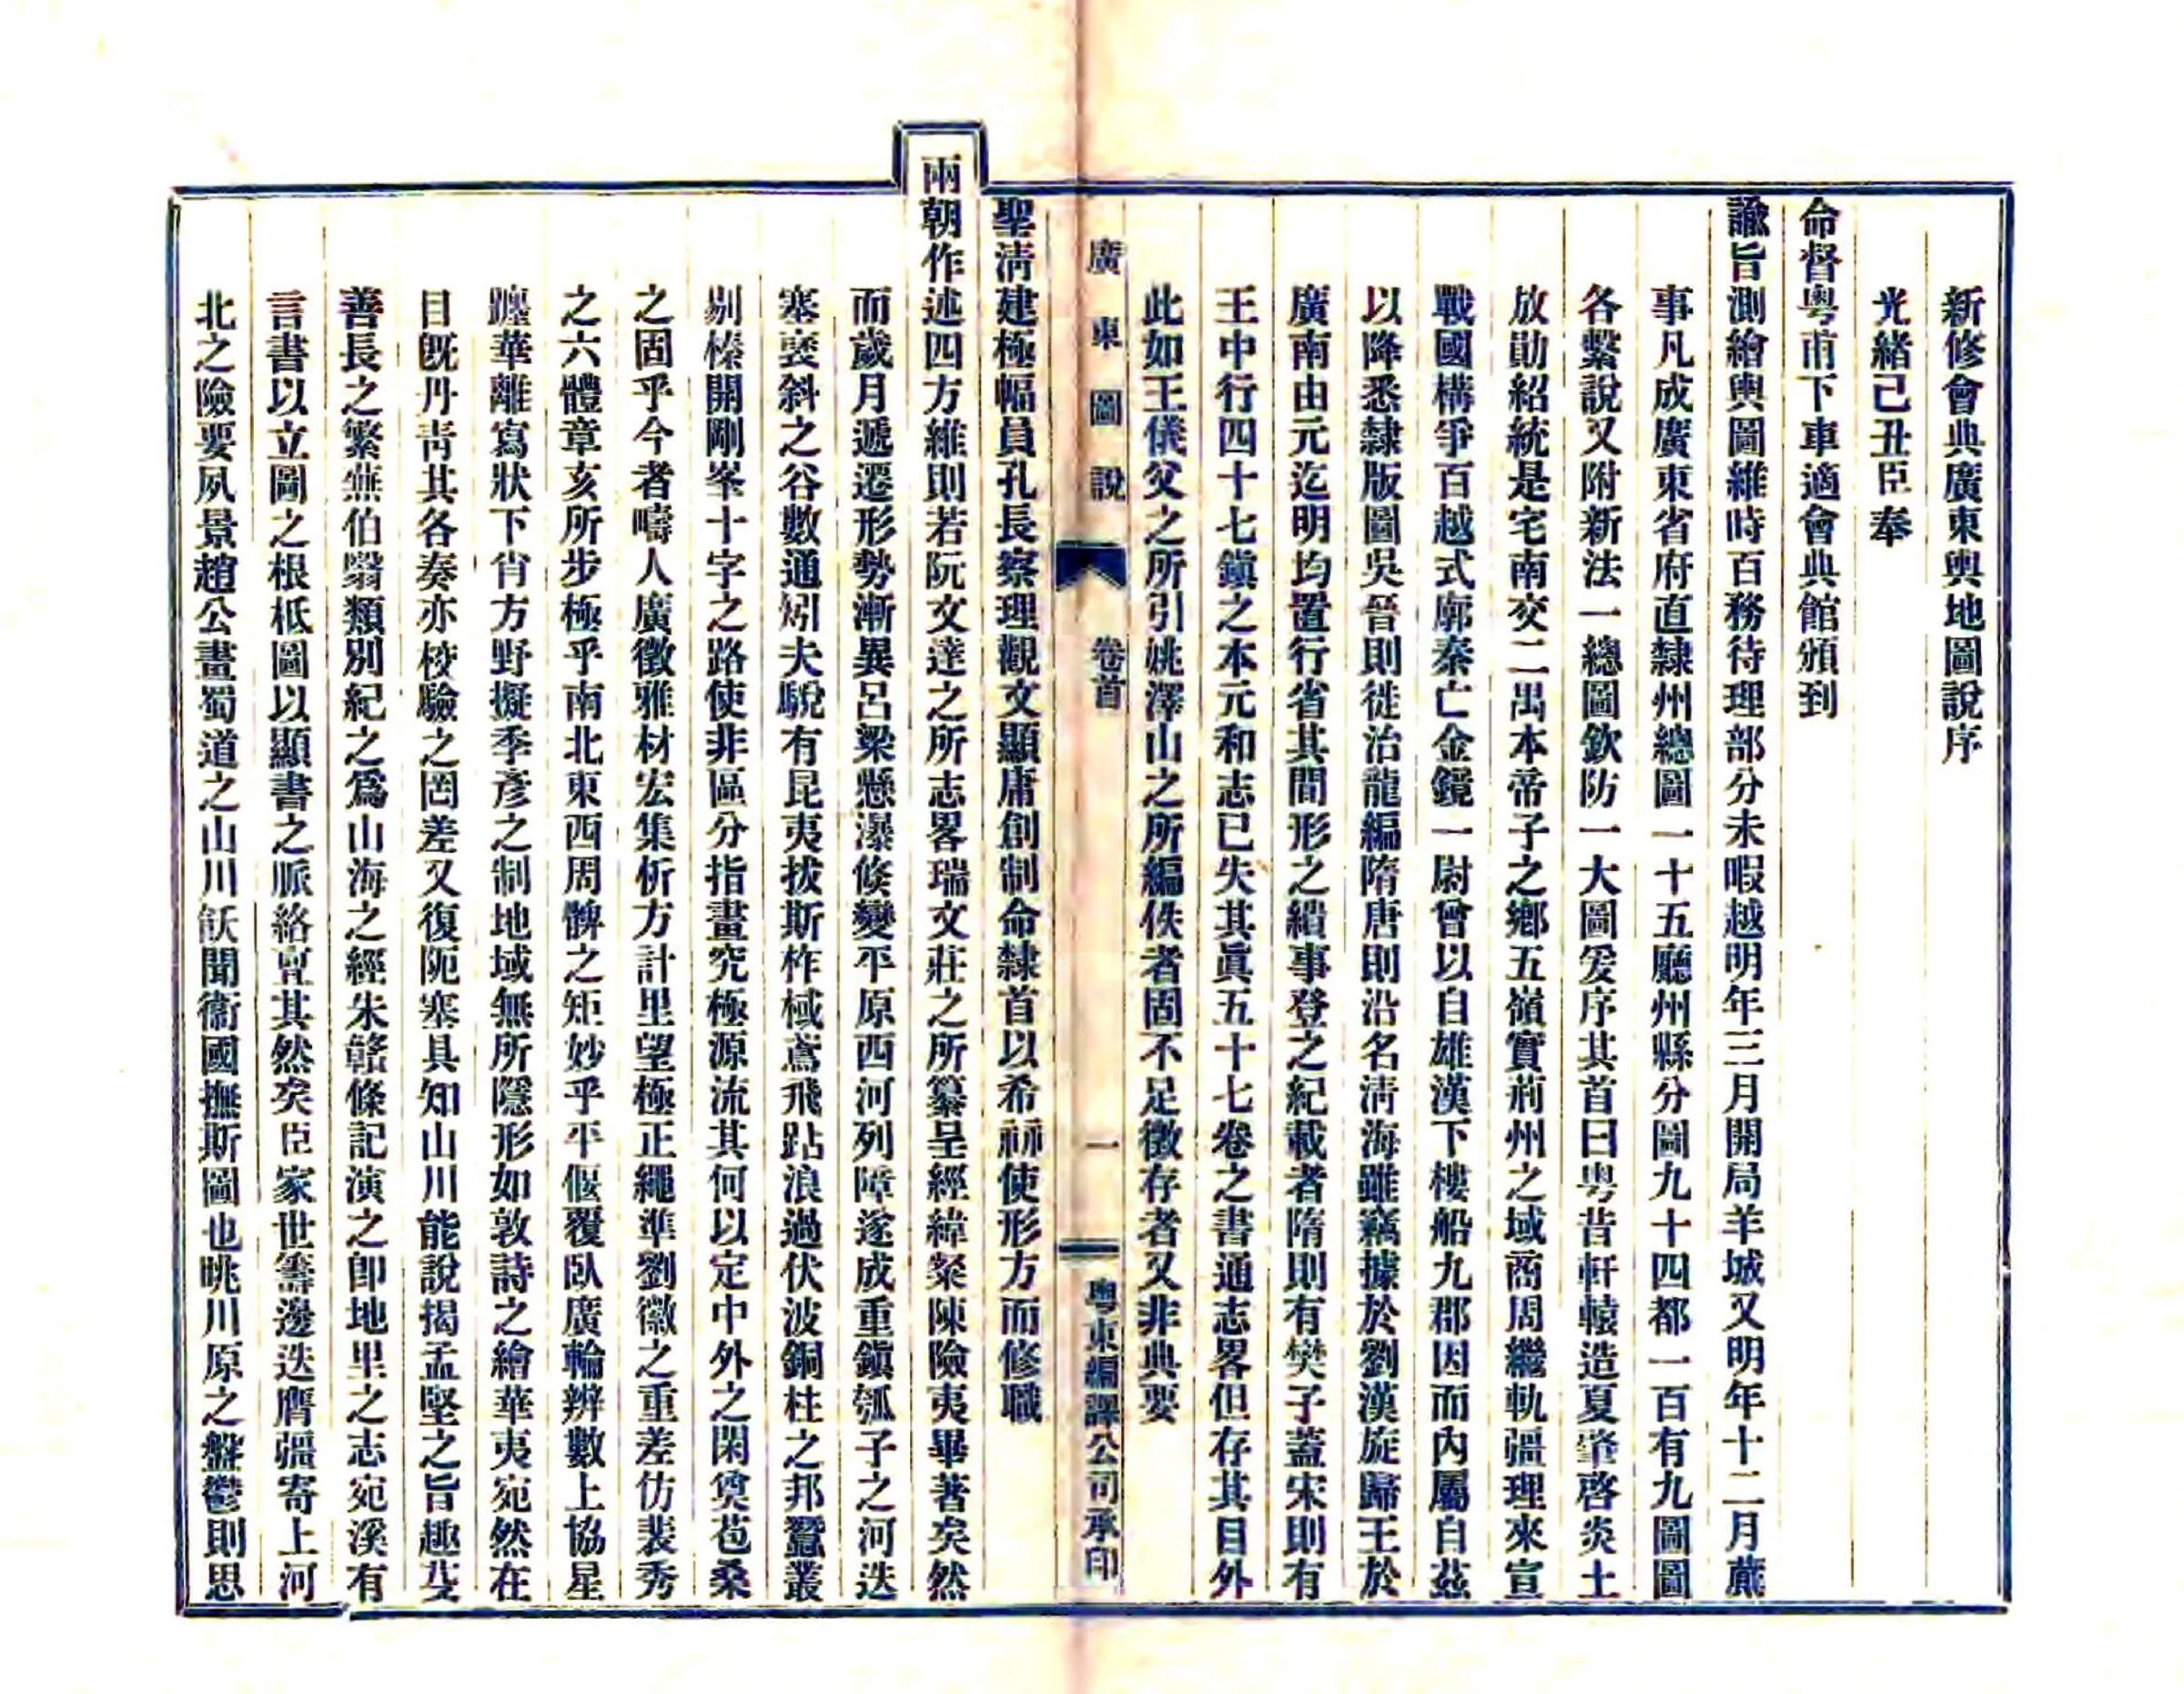 新修會典廣東輿地圖說序
光緒己丑臣奉
命督粤甫下車適會典館頒到
諭旨測繪輿圖維時百務待理部分未暇越明年三月開局羊城又明年十二月蕆
事凡成廣東省府直隸州總圖一十五廳州縣分圖九十四都一百有九圖圖
各繫說又附新法一總圖欽防一大圖爰序其首曰粤昔軒轅造夏肇啓炎土
放勛紹統是宅南交二禺本帝子之鄉五嶺實荊州之域商周繼軌疆理來宣
戰國構爭百越式廓秦亡金鏡一尉曾以自雄漢下樓船九郡因而內屬自茲
以降悉隸版圖吳晉則徙治龍編隋唐則沿名清海雖竊據於劉漢旋歸王於
廣南由元迄明均置行省其間形之繢事登之紀載者隋則有樊子蓋宋則有
王中行四十七鎮之本元和志已失其眞五十七卷之書通志畧但存其目外
此如王儀父之所引姚澤山之所編佚者固不足徵存者又非典要
廣東圖說 卷首 一 粤東編譯公司承印
聖清建極幅員孔長察理觀文顯庸創制命隸首以希祘使形方而修職
兩朝作述四方維則若阮文達之所志畧瑞文莊之所纂呈經緯粲陳險夷畢著矣然
而歲月遞遷形勢漸異呂梁懸瀑倏變平原西河列障遂成重鎮瓠子之河迭
塞褒斜之谷數通矧夫駾有昆夷拔斯柞棫鳶飛跕浪過伏波銅柱之邦蠶叢
剔榛開剛峯十字之路使非區分指畫究極源流其何以定中外之閑奠苞桑
之固乎今者疇人廣徵雅材宏集析方計里望極正繩準劉徽之重差仿裴秀
之六體章亥所步極乎南北東西周髀之矩妙乎平偃覆臥廣輪辨數上協星
躔華離寫狀下肖方野擬季彥之制地域無所隱形如敦詩之繪華夷宛然在
目旣丹靑其各奏亦校驗之罔差又復阨塞具知山川能說揭孟堅之旨趣芟
善長之繁蕪伯翳類別紀之爲山海之經朱贛條記演之卽地里之志宛溪有
言書以立圖之根柢圖以顯書之脈絡亶其然矣臣家世籌邊迭膺疆寄上河
北之險要夙景趙公畫蜀道之山川飫聞衞國撫斯圖也眺川原之盤鬱則思